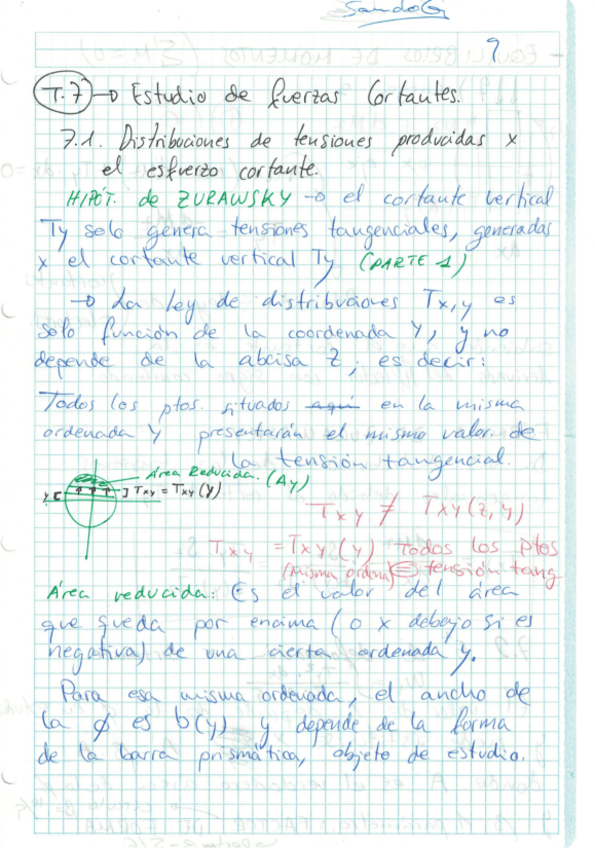 SandoG
9
T.7 → Estudio de fuerzas Cortantes.
7.1. Distribuciones de tensiones producidas x
el esfuerzo cortante.
HIPÓT. de ZURAWSKY → el cortante vertical
Ty solo genera tensiones tangenciales, generadas
x el cortante vertical Ty (PARTE 1)
→ La ley de distribuciones Tx,y es
solo función de la coordenada y, y no
depende de la abcisa z; es decir:
Todos los ptos. situados aquí en la misma
ordenada Y presentarán el mismo valor de
la tensión tangencial
Área Reducida. (Ay)
y Txy = Txy (y)
Txy ≠ Txy(z,y)
Txy = Txy(y) todos los ptos
(misma ordena) = tensión tang
Área reducida: Es el valor del área
que queda por encima (o x debajo si es
negativa) de una cierta ordenada y.
Para esa misma ordenada, el ancho de
la ϕ es b(y) y depende de la forma
de la barra prismática, objeto de estudio.